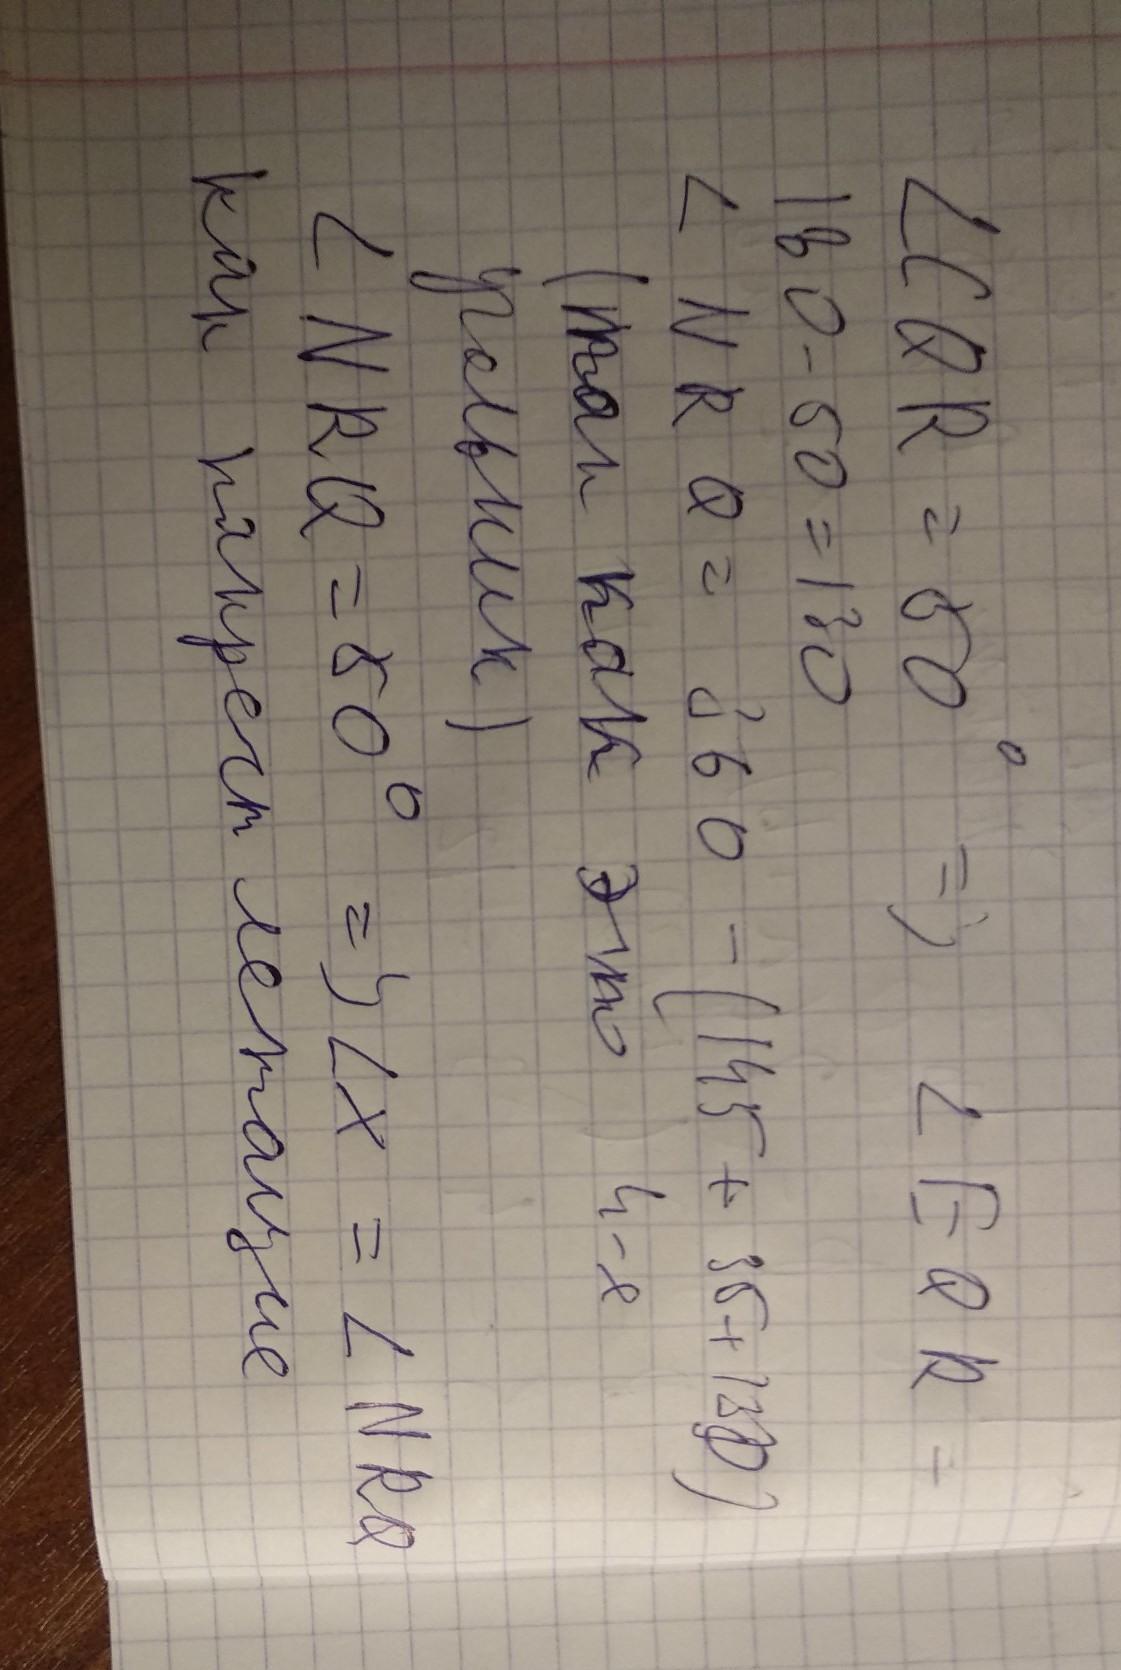 ∠CQR = 50° => ∠EQR =
180-50=130
∠NRQ= 360 -(145+ 35+130)
(так как это 4-х
угольник)
∠NRQ=50° => ∠X = ∠NRQ
как накрест лежащие